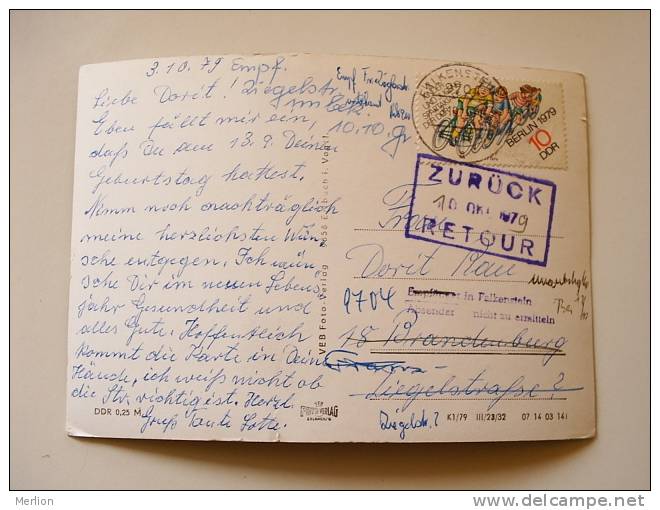 3.10.79 Empf.
Liebe Dorit! Ziegelstr.
Eben fällt mir ein, 10.10. Gr
daß Du am 13.9. Deinen
Geburtstag hattest.
Nimm noch nachträglich
meine herzlichsten Wün-
sche entgegen. Ich wün-
sche Dir im neuen Lebens-
jahr Gesundheit und
alles Gute. Hoffentlich
kommt die Karte in Deine
Hände, ich weiß nicht ob
die Str. richtig ist. Herzl.
Gruß Tante Lotte.
DDR 0,25 M
VEB Foto-Verlag
BERLIN 1979
10
DDR
ZURÜCK
10. OKT. 1979
RETOUR
Frau
Dorit Plau
9704
Empfänger in Falkenstein
Absender nicht zu ermitteln
18 Brandenburg
Ziegelstraße?
Ziegelstr.?
K1/79 III/23/32 07 14 03 141
Merlion
http://www.delcampe.net